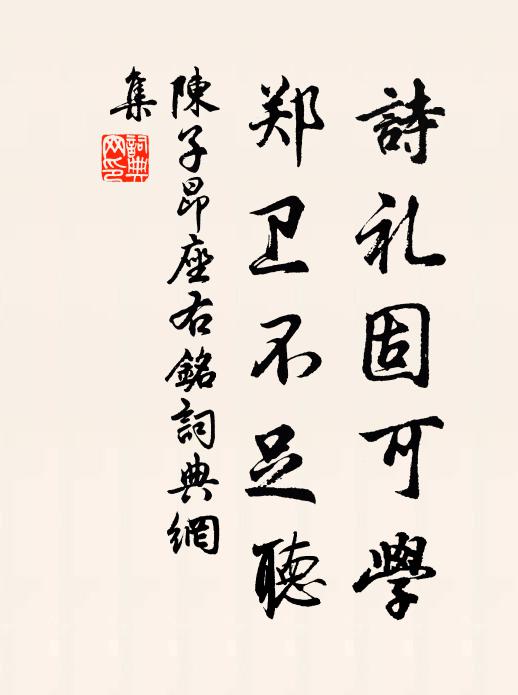 詩礼固可學
郑卫不足聽
陳子昂座右銘詞典網
集
詞典
网印